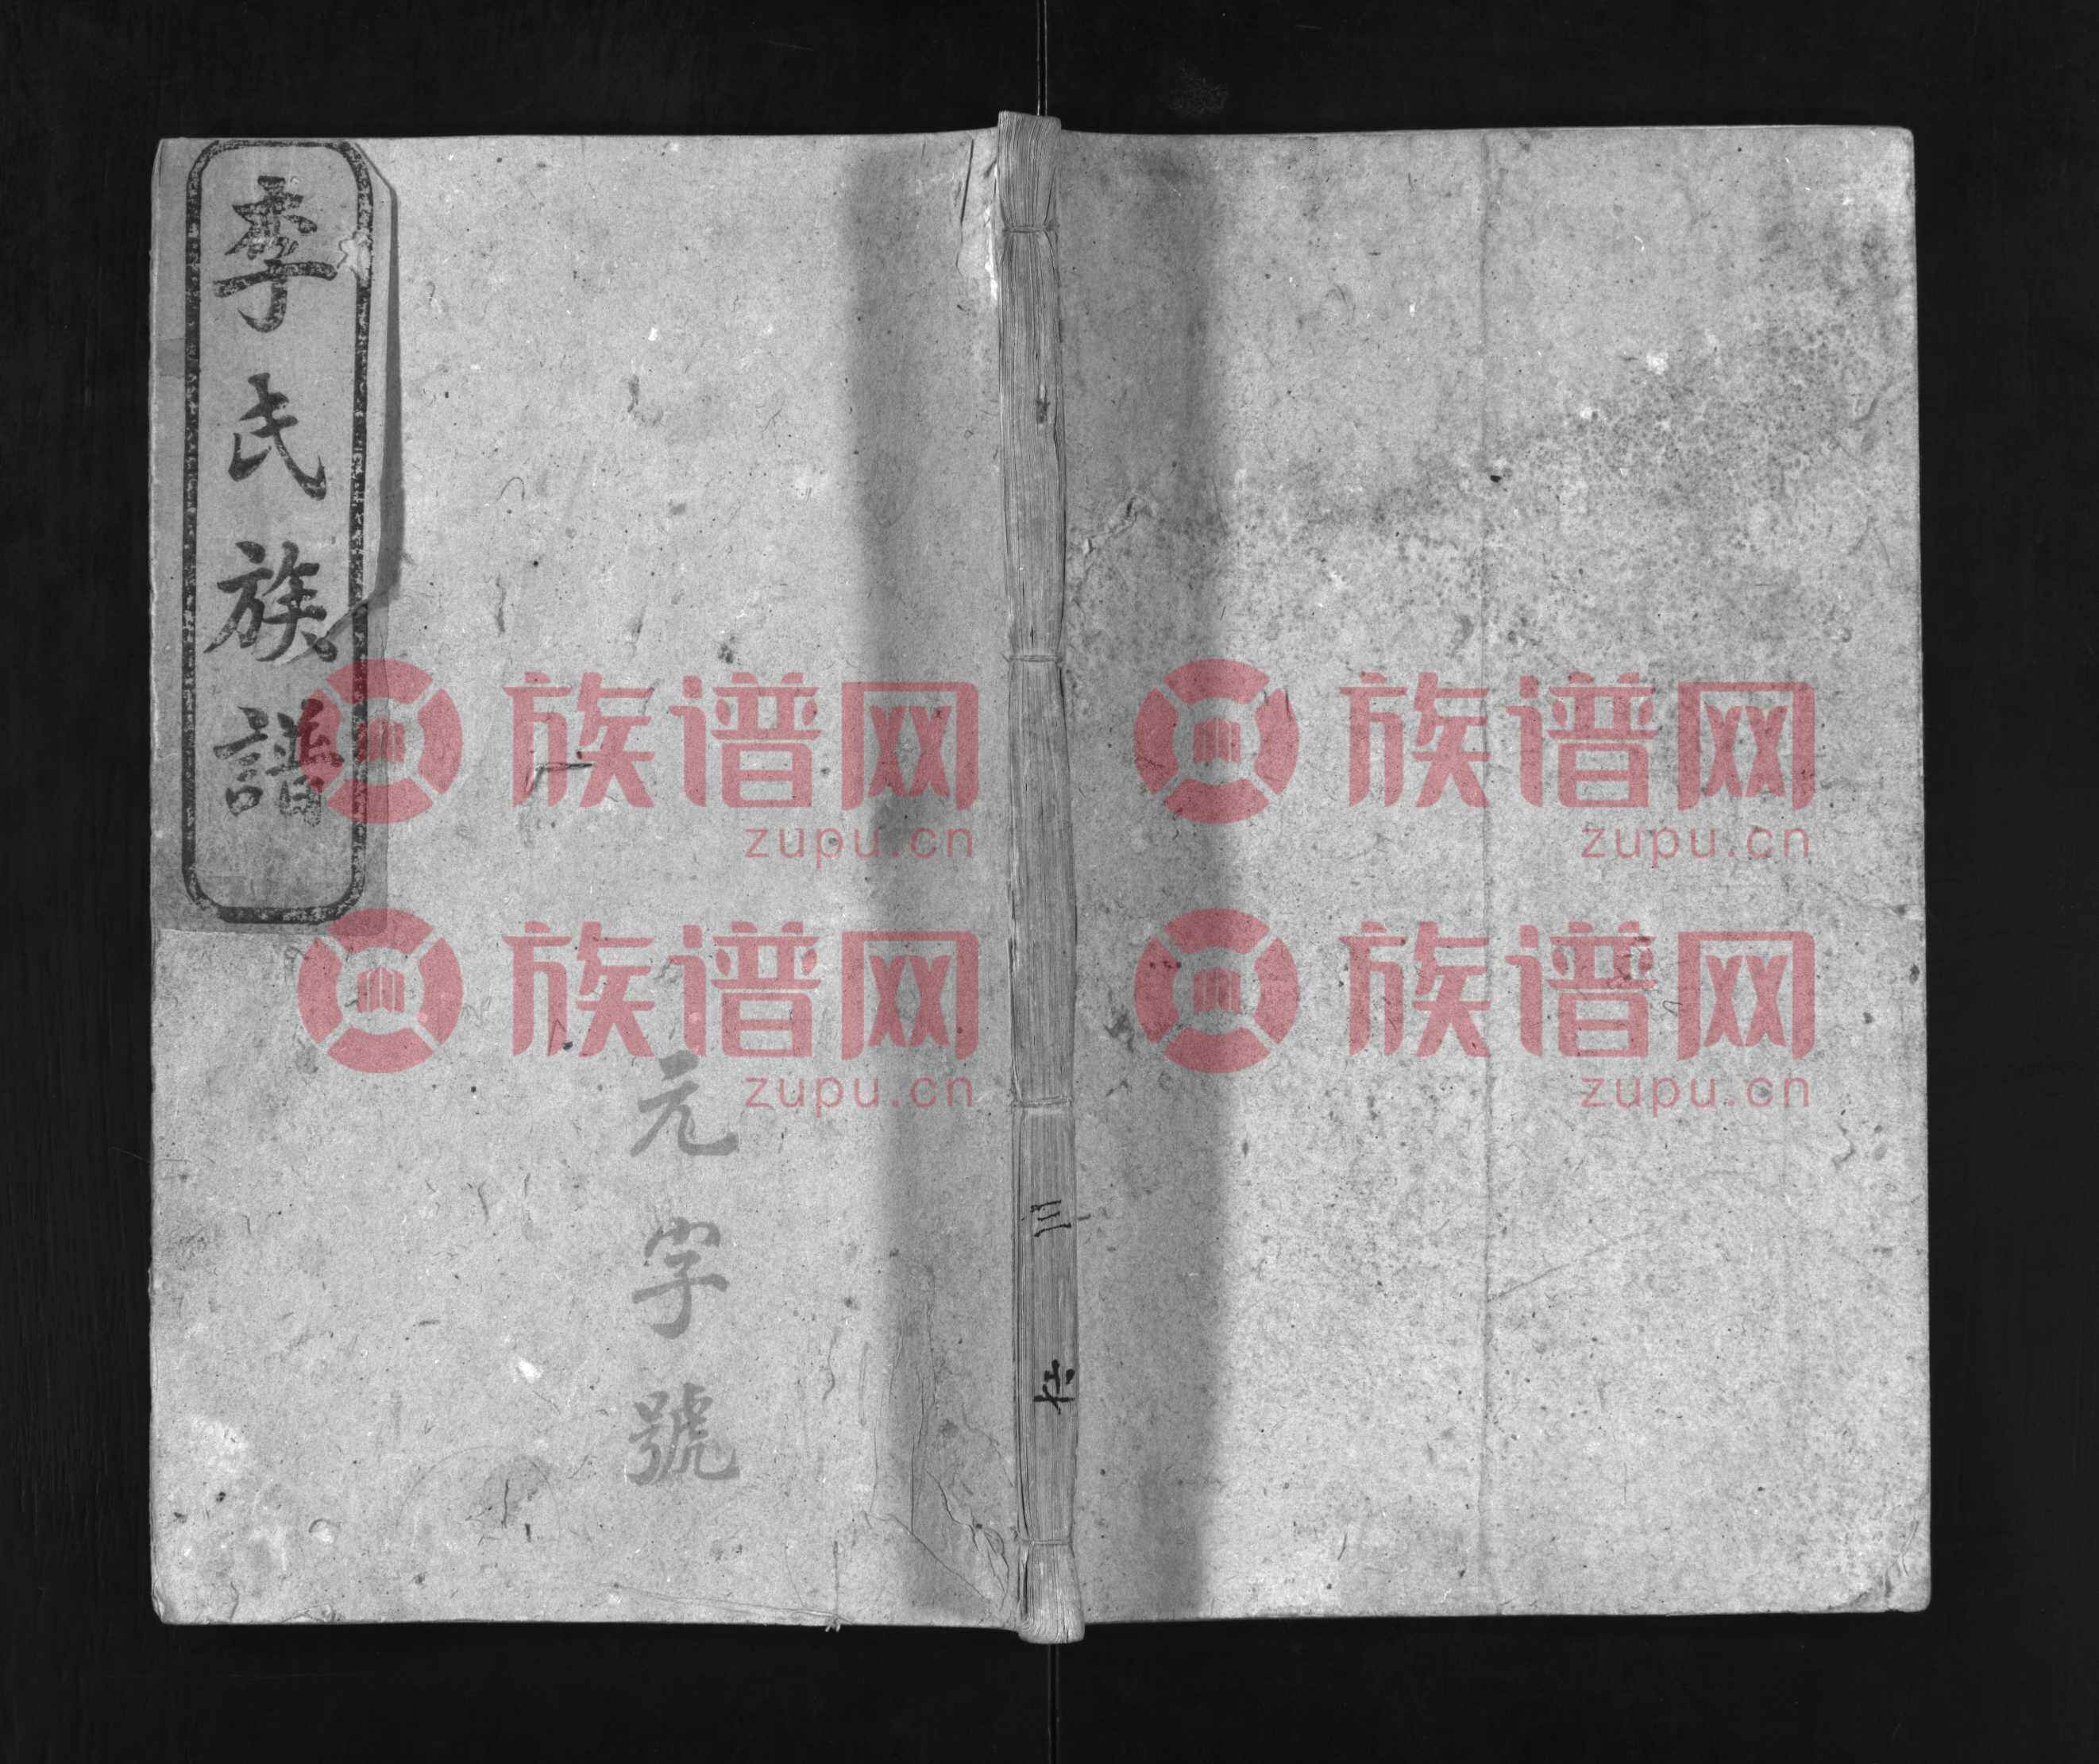 李氏族譜
元字號
三
族谱网
zupu.cn
族谱网
zupu.cn
族谱网
zupu.cn
族谱网
zupu.cn